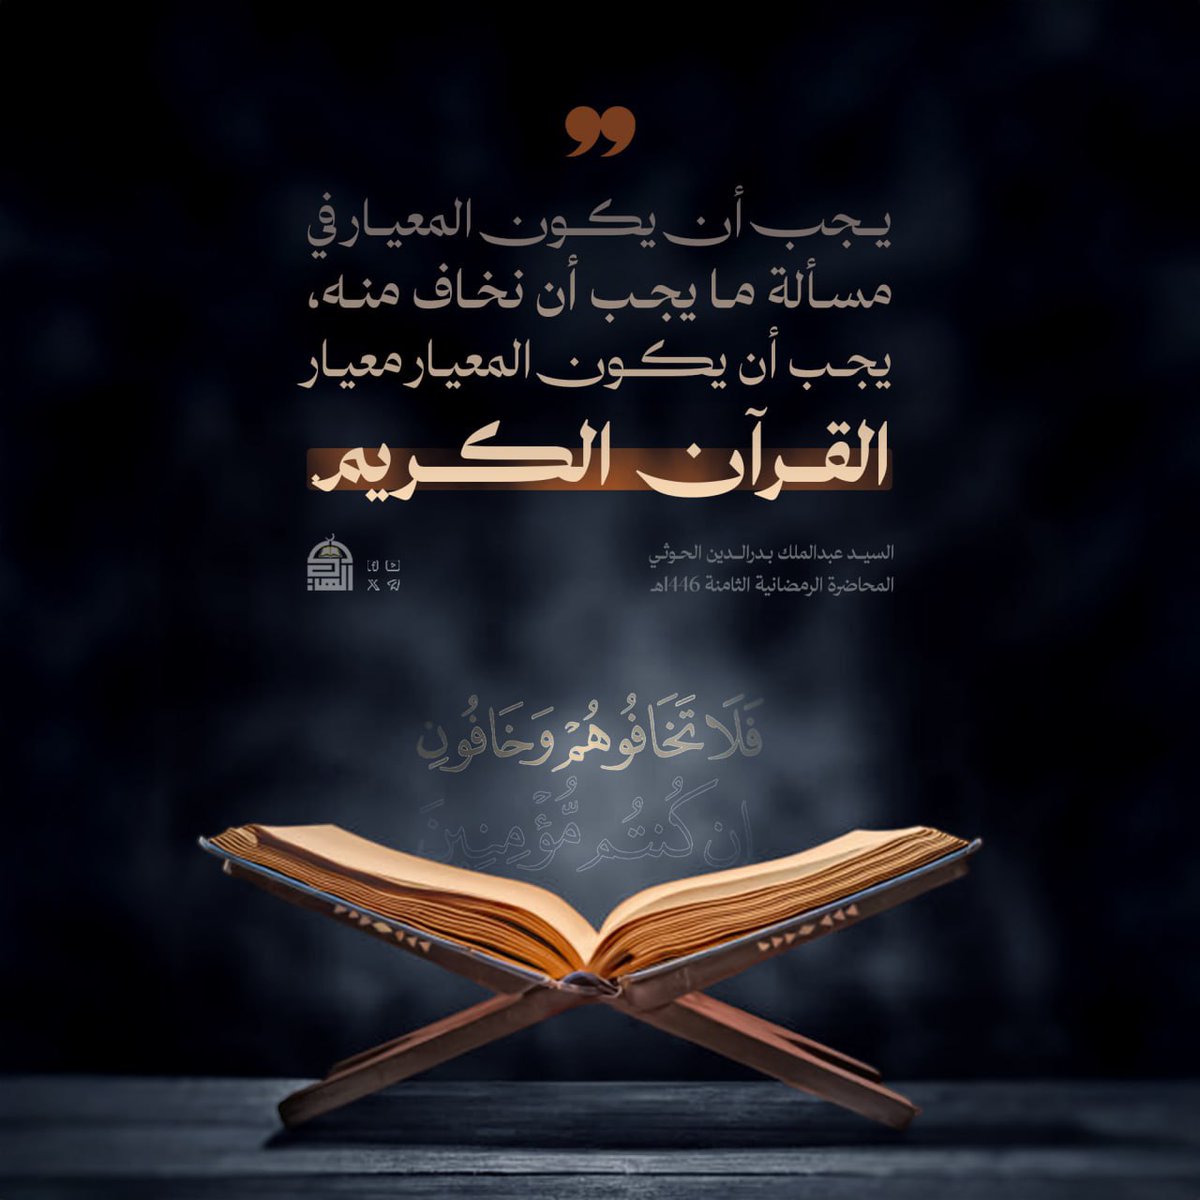 يجب أن يكون المعيار في
مسألة ما يجب أن نخاف منه،
يجب أن يكون المعيار معيار
القرآن الكريم
السيد عبدالملك بدرالدين الحوثي
المحاضرة الرمضانية الثامنة 1446هـ
فَلَا تَخَافُوهُمْ وَخَافُونِ
إِن كُنتُم مُّؤْمِنِينَ